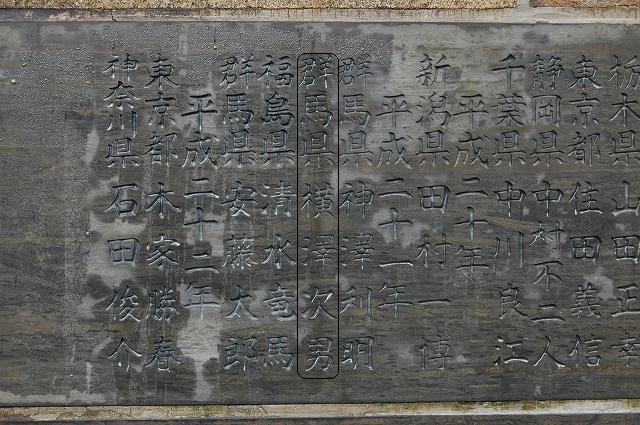 栃木県 山田正幸
東京都 住田義信
静岡県 中村不二人
千葉県 中川良江
平成二十年
新潟県 田村一博
平成二十一年
群馬県 神澤利明
群馬県 横澤次男
福島県 清水竜馬
群馬県 安藤太郎
平成二十二年
東京都 木家勝春
神奈川県 石田俊介